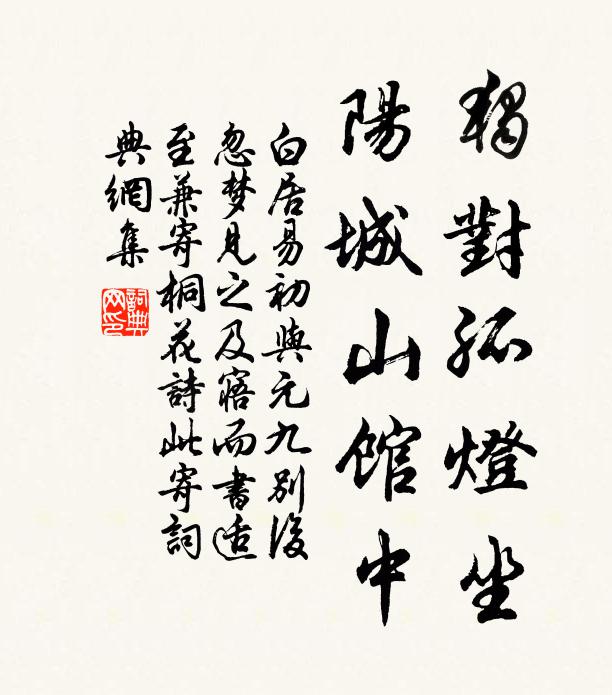 獨對孤燈坐
陽城山館中
白居易初與元九別後
忽梦見之及寤而書适
至兼寄桐花詩此寄詞
典網集
詞典
网印